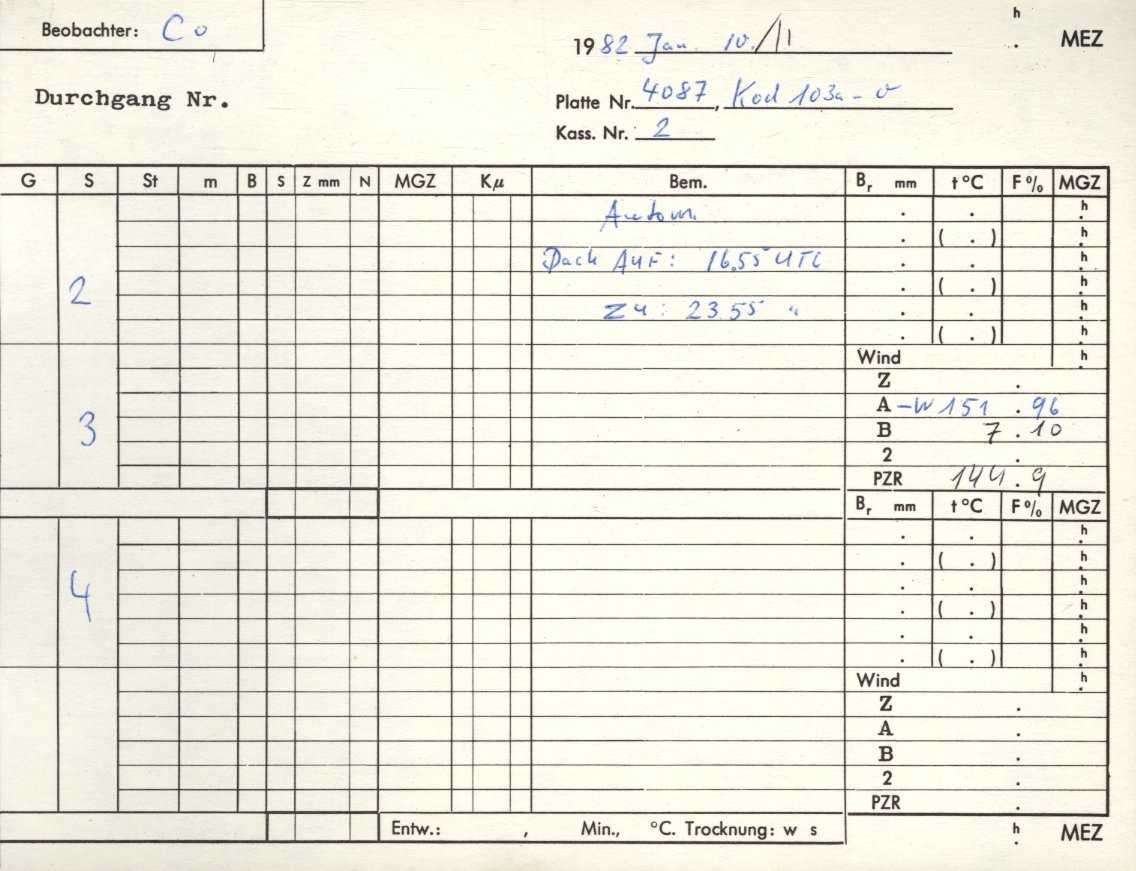 Beobachter: Co
h
1982 Jan. 10./11 . MEZ
Durchgang Nr.
Platte Nr. 4087, Kod 103a-O
Kass. Nr. 2
G S St m B S Z mm N MGZ Kμ Bem. Br mm t °C F % MGZ
Autom. . . h
. ( . ) h
Dach AUF: 16.55 UTC . . h
2 . ( . ) h
Zu: 23.55 " . . h
. ( . ) h
Wind h
Z .
3 A -W 151 . 96
B 7 . 10
2 .
PZR 144 . 9
Br mm t °C F % MGZ
. . h
. ( . ) h
. . h
4 . ( . ) h
. . h
. ( . ) h
Wind h
Z .
A .
B .
2 .
PZR .
Entw.: , Min., °C. Trocknung: w s h . MEZ